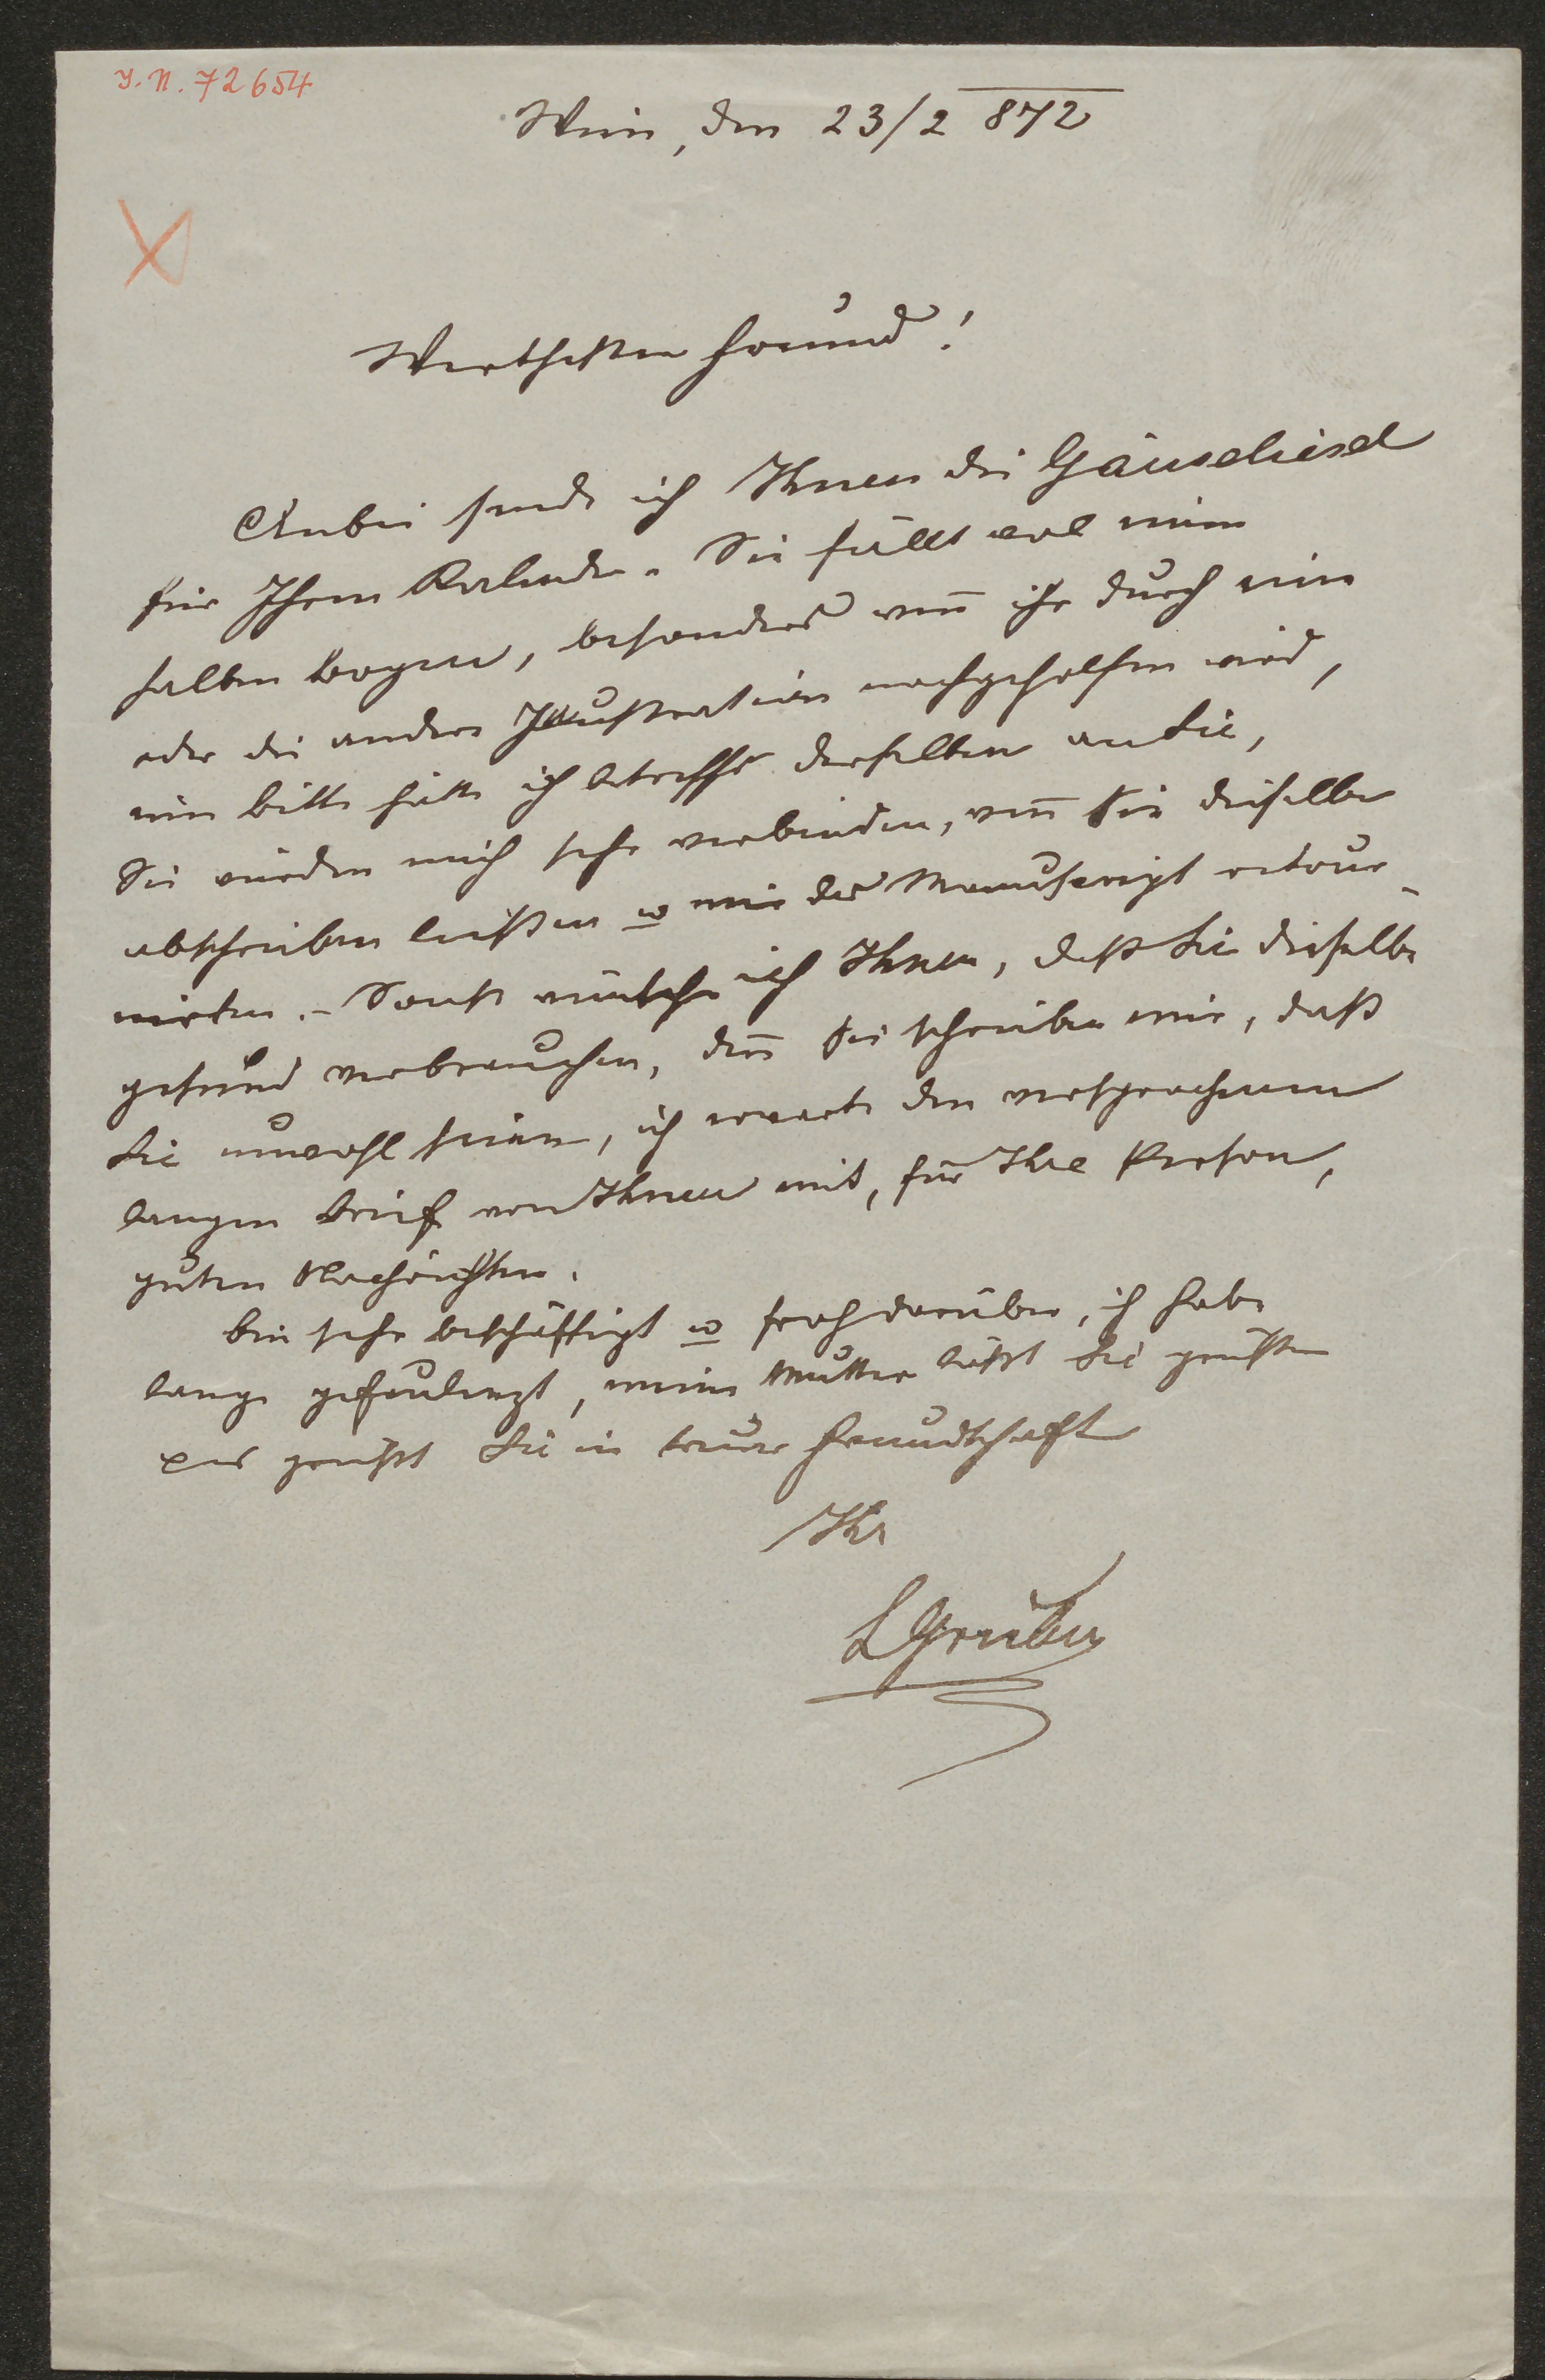 J. N. 72654
Wien, den 23/2 872
Werthester Freund!
Anbei sende ich Ihnen die Gänseliesel
für Ihren Kalender. Sie füllt wol einen
halben Bogen, besonders weñ ihr durch eine
oder die andere Illustration nachgeholfen wird,
eine Bitte hätte ich betreffs derselben an Sie,
Sie würden mich sehr verbinden, weñ Sie dieselbe
abschreiben ließen u mir das Manuscript retour-
nirten. – Sonst wünsche ich Ihnen, daß Sie dieselbe
gesund verbrauchen, deñ Sie schreiben mir, daß
Sie unwohl seien, ich erwarte den versprochenen
langen Brief von Ihnen mit, für Ihre Person,
guten Nachrichten.
Bin sehr beschäftigt u froh darüber, ich habe
lange gefaulenzt, meine Mutter läßt Sie grüßen
grüßt Sie in treuer Freundschaft
Ihr
LGruber